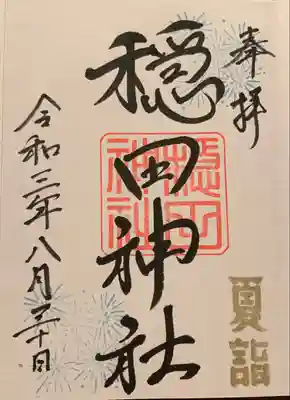 奉拝
穏田神社
穏田神社
夏詣
令和三年八月三十日